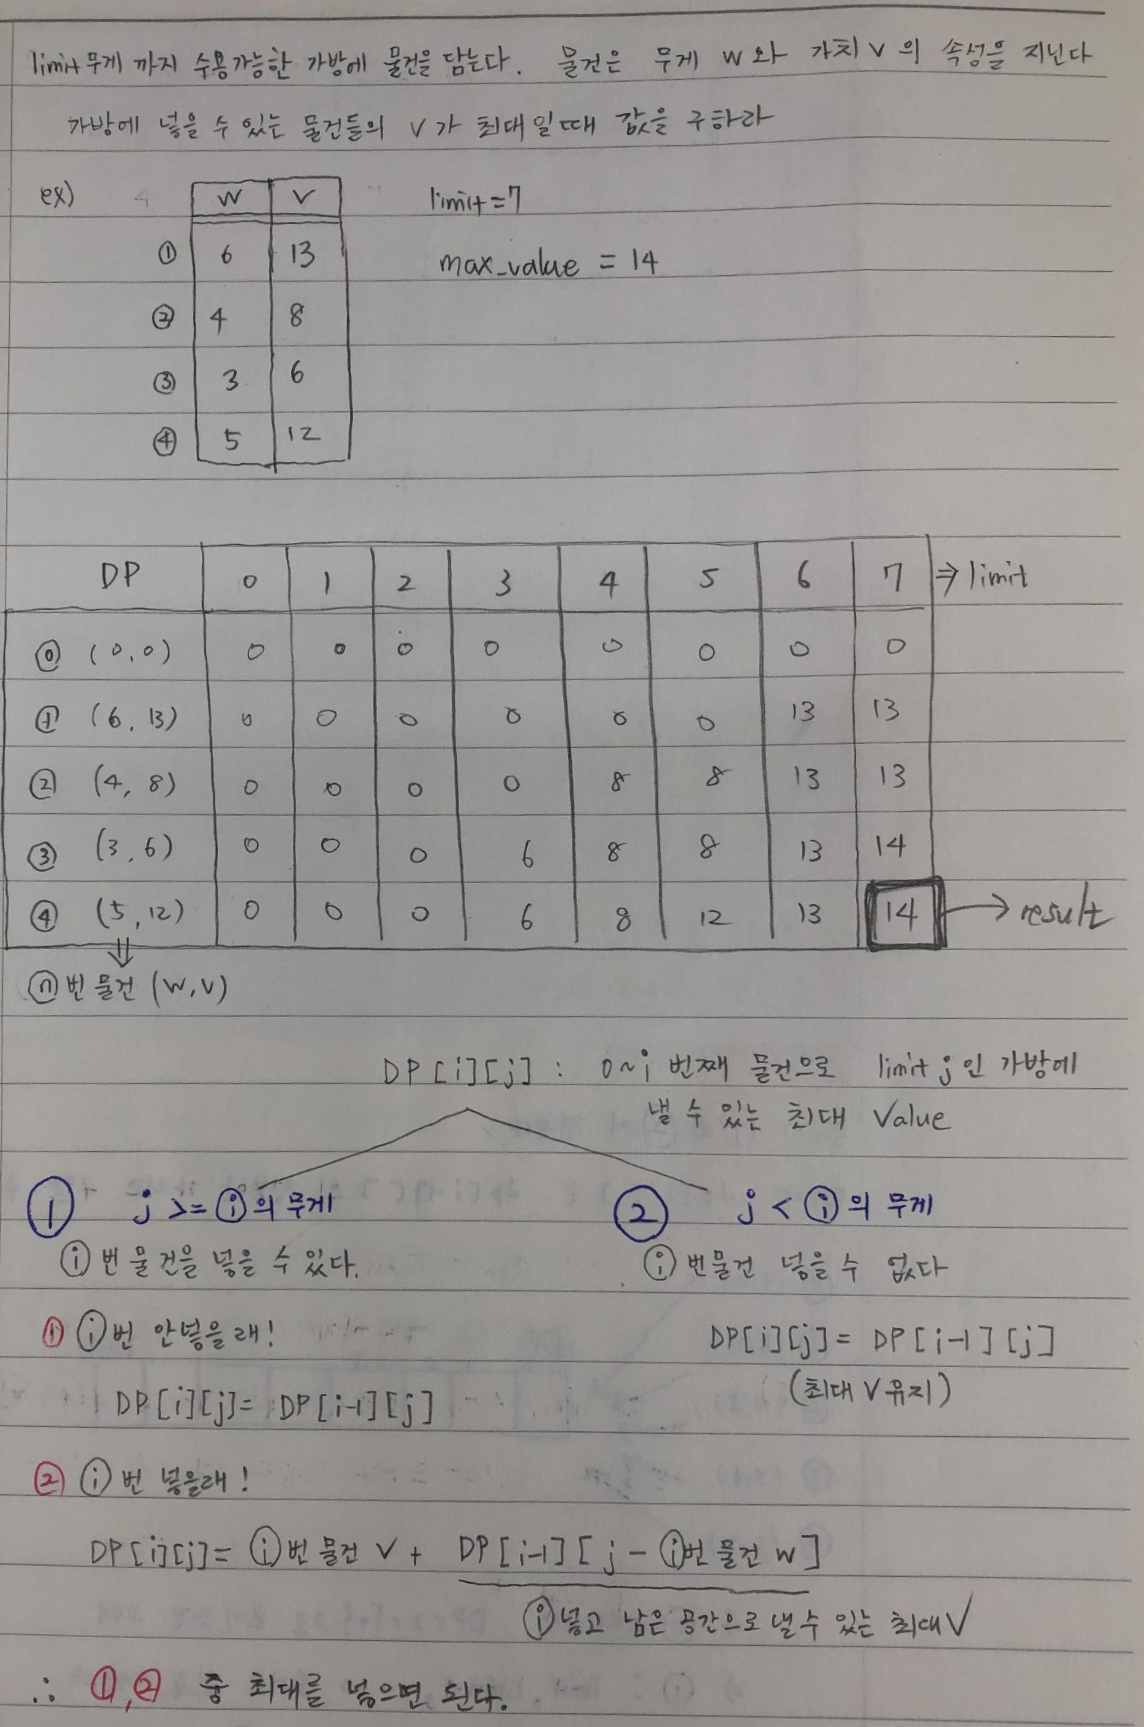 limit 무게 까지 수용가능한 가방에 물건을 담는다. 물건은 무게 W와 가치 V 의 속성을 지닌다
가방에 넣을 수 있는 물건들의 V가 최대일때 값을 구하라
ex) W V limit=7
① 6 13 max_value = 14
② 4 8
③ 3 6
④ 5 12
DP 0 1 2 3 4 5 6 7 ⇒ limit
⓪ (0,0) 0 0 0 0 0 0 0 0
① (6, 13) 0 0 0 0 0 0 13 13
② (4, 8) 0 0 0 0 8 8 13 13
③ (3,6) 0 0 0 6 8 8 13 14
④ (5,12) 0 0 0 6 8 12 13 14 → result
⇓
ⓝ번 물건 (W,V)
DP[i][j] : 0~i 번째 물건으로 limit j인 가방에
낼 수 있는 최대 Value
① j >= ⓘ의 무게 ② j < ⓘ의 무게
ⓘ번 물건을 넣을 수 있다. ⓘ번물건 넣을 수 없다
① ⓘ번 안넣을래! DP[i][j] = DP[i-1][j]
(최대 V 유지)
DP[i][j] = DP[i-1][j]
② ⓘ번 넣을래!
DP[i][j] = ⓘ번 물건 V + DP[i-1][j - ⓘ번 물건 W]
ⓘ넣고 남은 공간으로 낼 수 있는 최대 V
∴ ①,② 중 최대를 넣으면 된다.